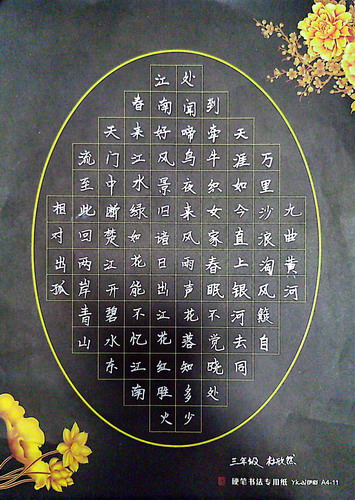 九曲黄河
万里沙浪淘风簸自
天涯如今直上银河去同
到牵牛织女家春眠不觉晓处
处闻啼鸟夜来风雨声花落知多少
江南好风景旧谙日出江花红胜火
春来江水绿如花能不忆江南
天门中断楚江开碧水东
流至此回两岸青山
相对出孤
三年级 杜欣然
硬笔书法专用纸 A4-11